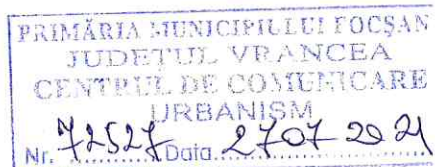 PRIMĂRIA MUNICIPIULUI FOCȘAN
JUDEȚUL VRANCEA
CENTRUL DE COMUNICARE
URBANISM
Nr. 72527 Data 27 07 2021